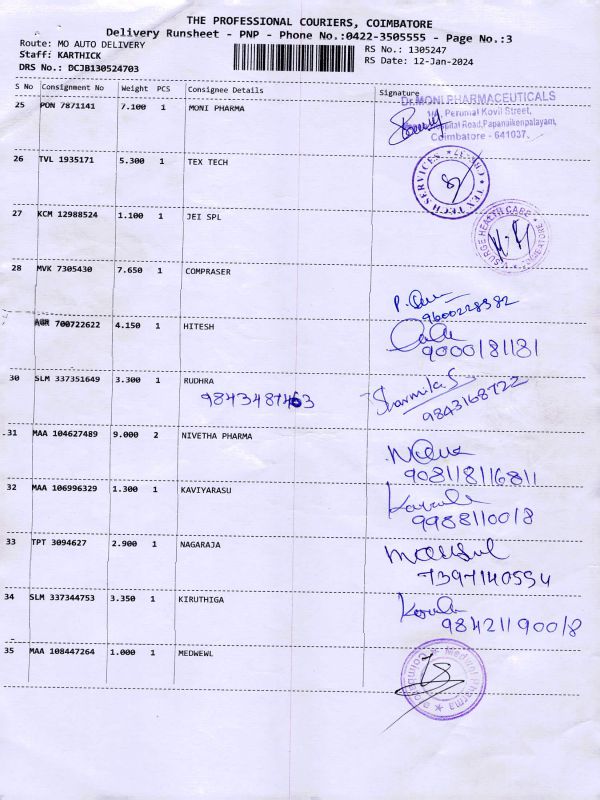 THE PROFESSIONAL COURIERS, COIMBATORE
Delivery Runsheet - PNP - Phone No.:0422-3505555 - Page No.:3
Route: MO AUTO DELIVERY
RS No.: 1305247
Staff: KARTHICK
RS Date: 12-Jan-2024
DRS No.: DCJB130524703
S No Consignment No Weight PCS Consignee Details Signature
25 PON 7871141 7.100 1 MONI PHARMA
Dr.MONI PHARMACEUTICALS
Perumal Kovil Street,
Hospital Road,Papanaikenpalayam,
Coimbatore - 641037.
26 TVL 1935171 5.300 1 TEX TECH
TEX TECH SERVICES
27 KCM 12988524 1.100 1 JEI SPL
SURGE HEALTH CARE
28 MVK 7305430 7.650 1 COMPRASER
9600228382
AGR 700722622 4.150 1 HITESH
9000181181
30 SLM 337351649 3.300 1 RUDHRA
9843487463
Sharmila S
9843168722
31 MAA 104627489 9.000 2 NIVETHA PHARMA
908118116811
32 MAA 106996329 1.300 1 KAVIYARASU
9988110018
33 TPT 3094627 2.900 1 NAGARAJA
7397140554
34 SLM 337344753 3.350 1 KIRUTHIGA
98421190018
35 MAA 108447264 1.000 1 MEDWEWL
Pharma